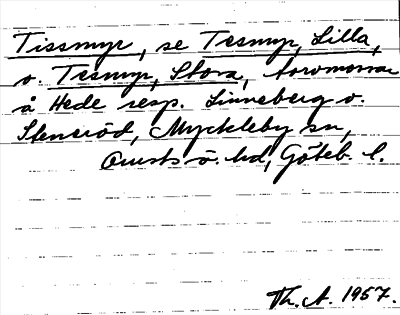 Tissmyr, se Tesmyr, Lilla,
o. Tesmyr, Stora, torvmossar
å Hede resp. Linneberg o.
Stensröd, Myckleby sn,
Orusts ö. hd, Göteb. l.
Th. A. 1957.